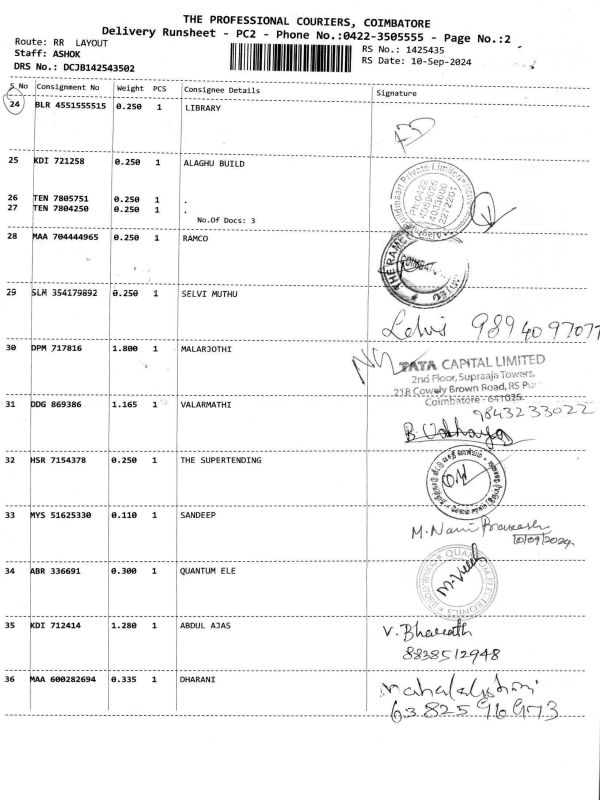 THE PROFESSIONAL COURIERS, COIMBATORE
Delivery Runsheet - PC2 - Phone No.:0422-3505555 - Page No.:2
Route: RR LAYOUT
RS No.: 1425435
Staff: ASHOK
RS Date: 10-Sep-2024
DRS No.: DCJB142543502
S No Consignment No Weight PCS Consignee Details Signature
24 BLR 4551555515 0.250 1 LIBRARY
25 KDI 721258 0.250 1 ALAGHU BUILD
26 TEN 7805751 0.250 1 .
27 TEN 7804250 0.250 1 .
No.Of Docs: 3
28 MAA 704444965 0.250 1 RAMCO
THE RAMCO
29 SLM 354179892 0.250 1 SELVI MUTHU
9894097077
30 DPM 717816 1.800 1 MALARJOTHI
TATA CAPITAL LIMITED
2nd Floor, Supraaja Towers,
21B Cowely Brown Road, RS Pu
Coimbatore - 641025.
31 DDG 869386 1.165 1 VALARMATHI
9843233022
32 HSR 7154378 0.250 1 THE SUPERTENDING
33 MYS 51625330 0.110 1 SANDEEP
10/09/2024
34 ABR 336691 0.300 1 QUANTUM ELE
35 KDI 712414 1.280 1 ABDUL AJAS
V. Bharath
8838512948
36 MAA 600282694 0.335 1 DHARANI
6382596973